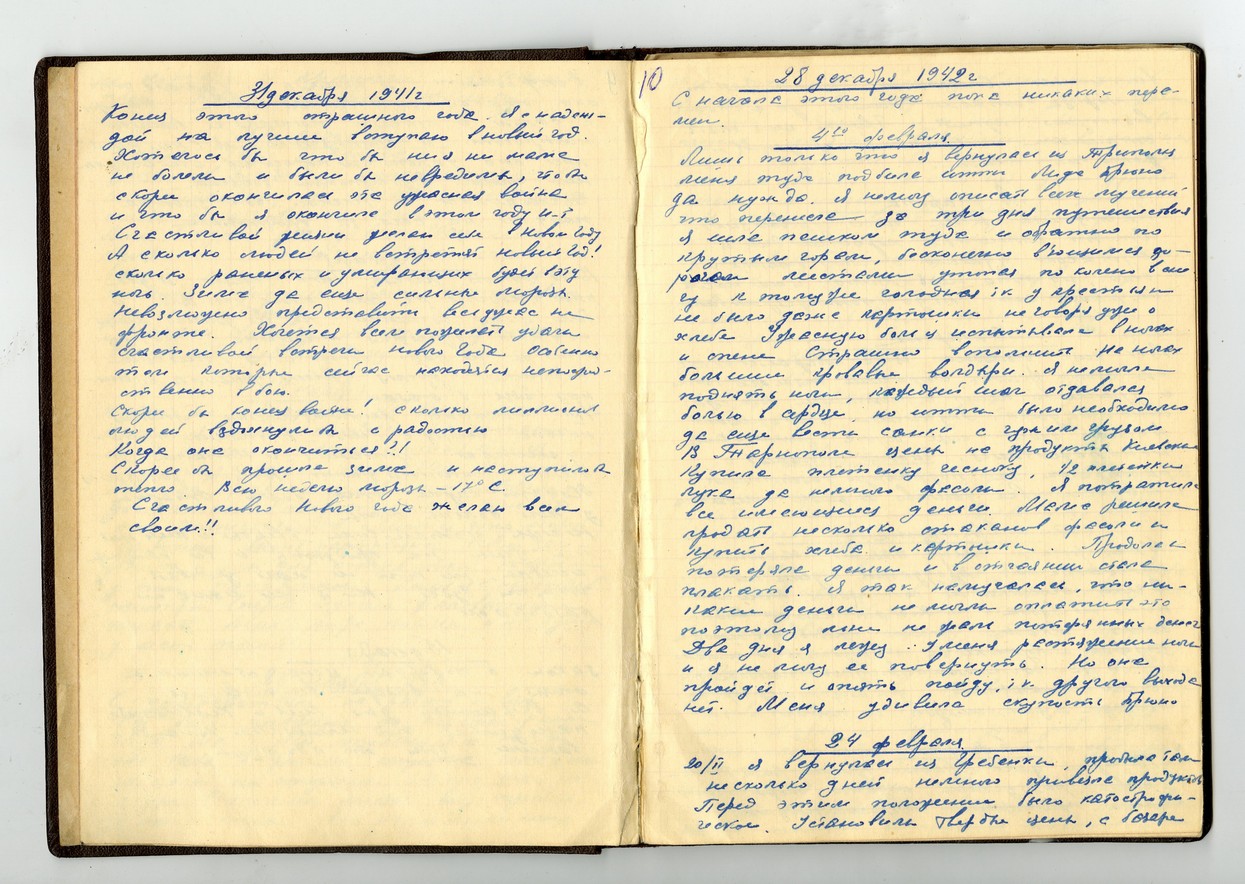 31 декабря 1941г
Конец этого страшного года. Я с надеж-
дой на лучшее вступаю в новый год.
Хотелось бы что бы ни я ни мама
не болели и были бы невредимы, чтобы
скорей окончилась эта ужасная война
и что бы я окончила в этом году и-т
Счастливой жизни желаю себе в Новом году
А сколько людей не встретят новый год!
сколько раненых и умирающих будет в эту
ночь. Зима да еще сильные морозы.
Невозможно представить весь ужас на
фронте. Хочется всем пожелать удачи
счастливой встречи нового года особенно
тем которые сейчас находятся непосред-
ственно в бою.
Скорей бы конец войне! сколько миллионов
людей вздохнули бы с радостью
Когда она окончиться?!!
Скорее бы прошла зима и наступило бы
тепло. Всю неделю морозы – 17° С.
Счастливого Нового года желаю всем
своим!!
10
28 декабря 1942г
С начала этого года пока никаких пере-
мен.
4го февраля
Лишь только что я вернулась из Триполья
меня туда подбила итти Лида Брюно
да нужда. Я не могу описать всех мучений
что перенесла за три дня путешествия
Я шла пешком туда и обратно по
крутым горам, бесконечно вьющимся до-
рогам местами утопая по колено в сне-
гу к тому же голодная т.к. у крестьян
не было даже картошки не говоря уже о
хлебе Ужасную боль я испытывала в ногах
и спине Страшно вспомнить. На ногах
большие кровавые волдыри. Я не могла
поднять ноги, каждый шаг отдавался
болью в сердце но итти было необходимо
да еще везти санки с чужим грузом
В Тариополе цены на продукты Киевские
Купила плетенку чесноку, 1/2 плетенки
лука да немного фасоли. Я потратила
все имеющиеся деньги. Мама решила
продать несколько стаканов фасоли и
купить хлеба и картошки. Продала и
потеряла деньги и в отчаянии стала
плакать. Я так намучалась, что ни-
какие деньги не могли оплатить это
поэтому мне не жаль потерянных денег
Два дня я лежу. У меня растяжение ноги
и я не могу ее повернуть. Но она
пройдет и опять пойду, т.к. другого выхода
нет. Меня удивила скупость Брюно
24 февраля
20/II я вернулась из Гребенки, пробыла там
несколько дней немного привезла продуктов
Перед этим положение было катастрофи-
ческое. Установили твердые цены, с базара